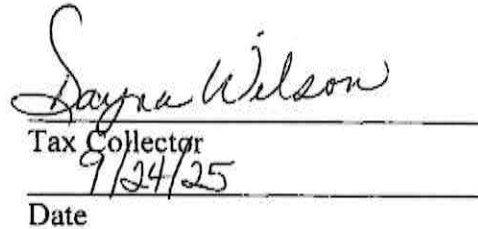 Dayna Wilson
Tax Collector
9/24/25
Date